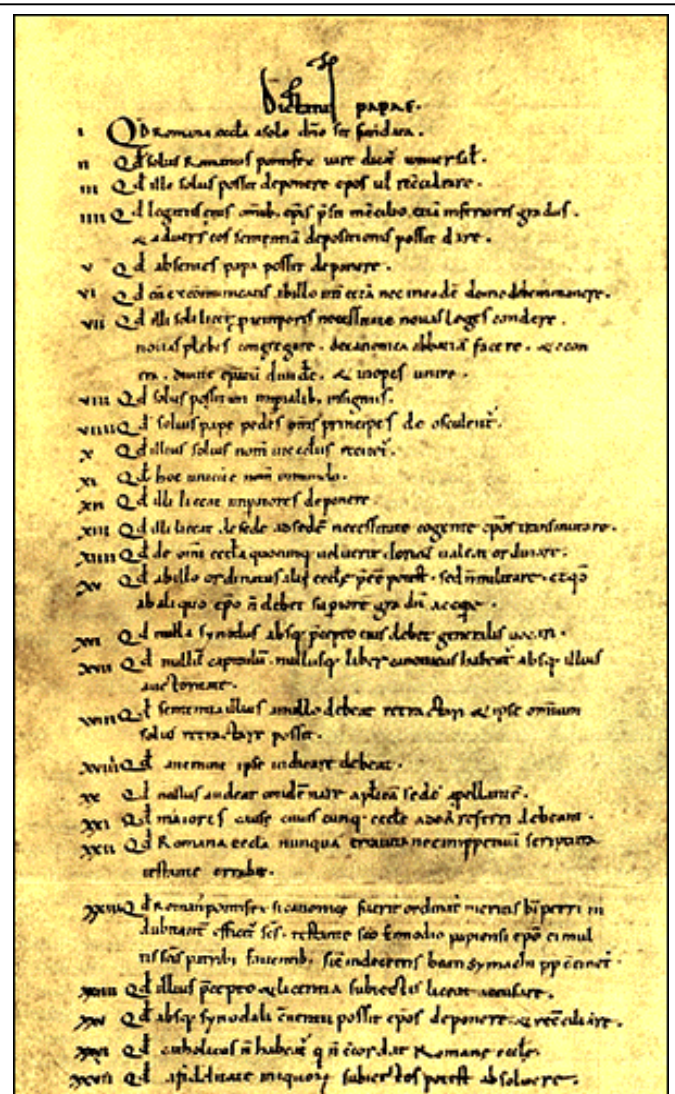 Dictatus papae.
I Qd Romana eccła asolo dno sit fundata.
II Qd solus Romanus pontifex iure dicat' universał.
III Qd ille solus possit deponere epos uł recciliare.
IIII Qd legatus eius omib; epis p̄sit in cc̄ilio, etiā inferioris gradus.
& adversus eos sententiā depositionis possit dare.
V Qd absentes papa possit deponere.
VI Qd cū excōmunicatis ab illo int' cet̄a nec in eadē domo debemus manere.
VII Qd illi soli licet p temporis necessitate novas leges condere.
novas plebes congregare. de canonica abbatiā facere. & econ
tra. divite epatū divide. & inopes unire.
VIII Qd solus possit uti imp̄ialib; insigniis.
VIIII Qd solius pape pedes om̄s principes de osculent'.
X Qd illius solius nom̄ in eccłis recitet'.
XI Qd hoc unicū ē nom̄ in mundo.
XII Qd illi liceat imp̄atores deponere.
XIII Qd illi liceat de sede ad sedē necessitate cogente epos transmutare.
XIIII Qd de om̄i eccła quocunq; uoluerit clericū ualeat ordinare.
XV Qd ab illo ordinatus alii eccłe p̄ee potest, sed n̄ militare. et qd
ab aliquo epo n̄ debet supiorē gradū accipe.
XVI Qd nulla synodus absq; p̄cepto eius debet generalis uocari.
XVII Qd nullū capitulū nullusq; liber canonicus habeat' absq; illius
auctoritate.
XVIII Qd sententia illius a nullo debeat retractari & ipse omnium
solus retractare possit.
XVIIII Qd a nemine ipse iudicare debeat.
XX Qd nullus audeat condēnare aplicā sedē apellante.
XXI Qd maiores cause cuiuscunq; eccłe ad eā referri debeant.
XXII Qd Romana eccła nunquā erravit nec inppetuū scriptura
testante errabit.
XXIII Qd Roman' pontifex si canonice fuerit ordinat' meritis bi petri in
dubitant' effici' scs. testante sco Ennodio papiensi epo ei mul
tis scis patrib; faventib; sic in decretis beati Symachi pp c̄tinet'.
XXIIII Qd illius p̄cepto & licentia subiectis liceat accusare.
XXV Qd absq; synodali c̄ventu possit epos deponere & recc̄iliare.
XXVI Qd catholicus n̄ habeat' q n̄ c̄cordat Romane eccłe.
XXVII Qd a fidelitate iniquorū subiectos potest absoluere.